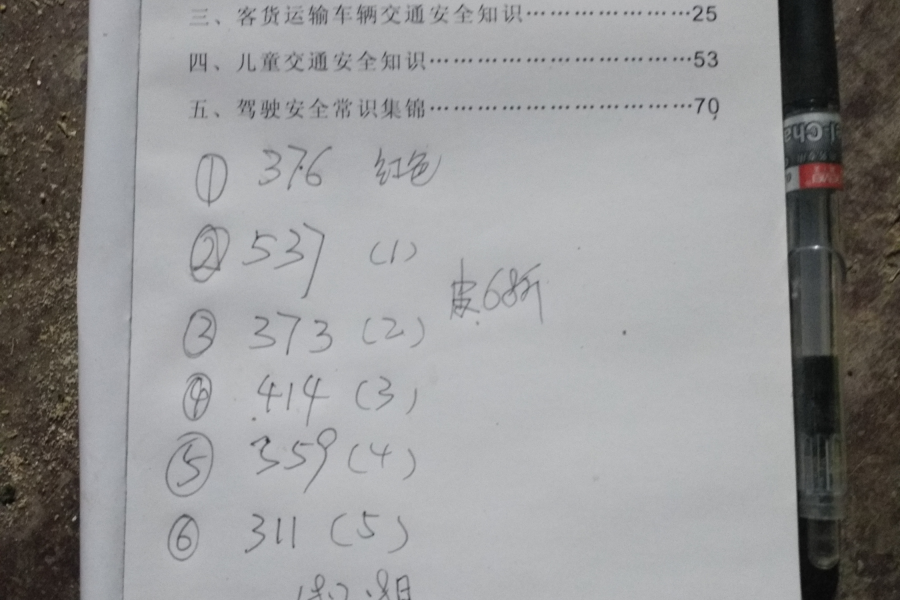 三、客货运输车辆交通安全知识…………………25
四、儿童交通安全知识……………………………53
五、驾驶安全常识集锦……………………………70
① 376 红色
② 537 (1)
皮68斤
③ 373 (2)
④ 414 (3)
⑤ 359 (4)
⑥ 311 (5)